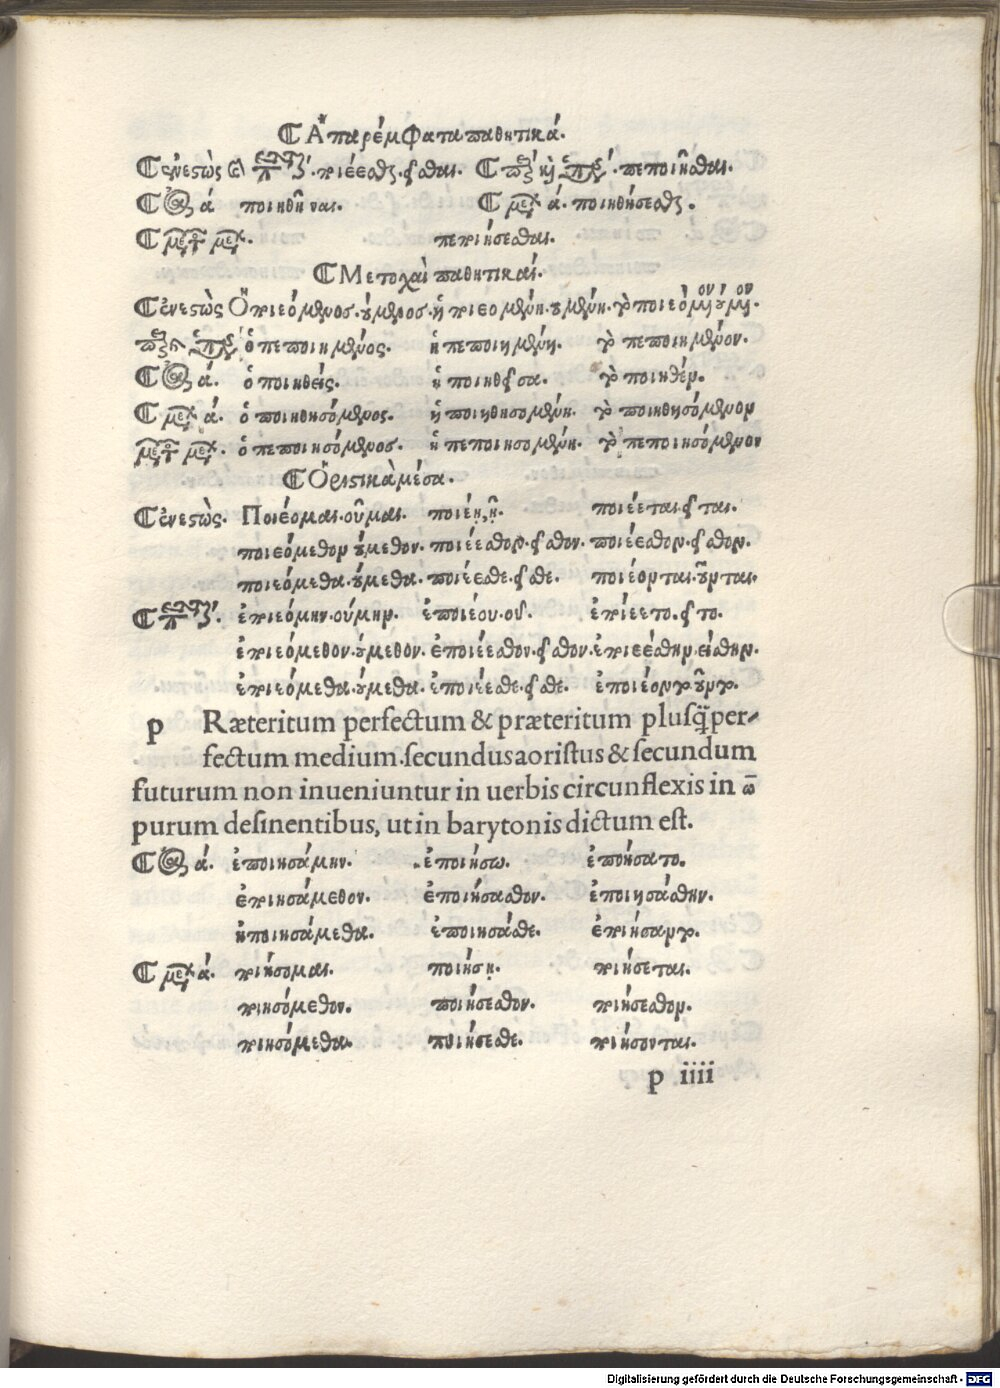 Ἀπαρέμφατα παθητικά.
ἐνεστὼς ποιέεσθαι. εῖσθαι. πεποιῆσθαι.
ά ποιηθῆναι. ά. ποιηθήσεσθαι.
ποιήσεσθαι.
Μετοχαὶ παθητικαί.
ἐνεστὼς Ὁ ποιεόμενος. ούμενος. ἡ ποιεομένη. ουμένη. τὸ ποιεόμενον ούμενον.
ὁ πεποιημένος. ἡ πεποιημένη. τὸ πεποιημένον.
ά. ὁ ποιηθείς. ἡ ποιηθεῖσα. τὸ ποιηθέν.
ά. ὁ ποιηθησόμενος. ἡ ποιηθησομένη. τὸ ποιηθησόμενον
ὁ πεποιησόμενος. ἡ πεποιησομένη. τὸ πεποιησόμενον
Ὁριστικὰ μέσα.
ἐνεστὼς. Ποιέομαι. οῦμαι. ποιέῃ, ῇ. ποιέεται. εῖται.
ποιεόμεθον ούμεθον. ποιέεσθον. εῖσθον. ποιέεσθον. εῖσθον.
ποιεόμεθα. ούμεθα. ποιέεσθε. εῖσθε. ποιέονται. οῦνται.
ἐποιεόμην. ούμην. ἐποιέου. οῦ. ἐποιέετο. εῖτο.
ἐποιεόμεθον. ούμεθον. ἐποιέεσθον. εῖσθον. ἐποιεέσθην. είσθην.
ἐποιεόμεθα. ούμεθα. ἐποιέεσθε. εῖσθε. ἐποιέοντο. οῦντο.
p Ræteritum perfectum & præteritum plusq̃per-
fectum medium. secundus aoristus & secundum
futurum non inueniuntur in uerbis circunflexis in ω̄
purum desinentibus, ut in barytonis dictum est.
ά. ἐποιησάμην. ἐποιήσω. ἐποιήσατο.
ἐποιησάμεθον. ἐποιήσασθον. ἐποιησάσθην.
ἠποιησάμεθα. ἐποιησάσθε. ἐποιήσαντο.
ά. ποιήσομαι. ποιήσῃ. ποιήσεται.
ποιησόμεθον. ποιήσεσθον. ποιήσεσθον.
ποιησόμεθα. ποιήσεσθε. ποιήσονται.
p iiii
Digitalisierung gefördert durch die Deutsche Forschungsgemeinschaft - DFG